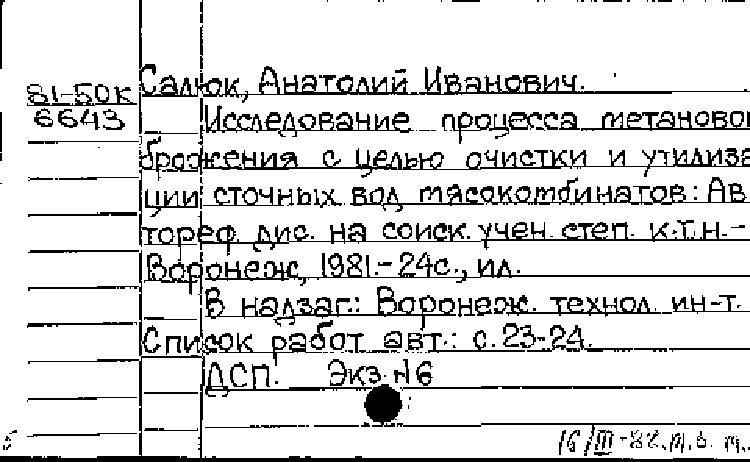 81-50К
6643
Салюк, Анатолий Иванович.
Исследование процесса метановог
брожения с целью очистки и утилиза
ции сточных вод мясокомбинатов: Ав
тореф. дис. на соиск. учен. степ. к.т.н. -
Воронеж, 1981. - 24с., ил.
В надзаг.: Воронеж. технол. ин-т.
Список работ авт.: с. 23-24.
ДСП. Экз. №6
16/III-82.